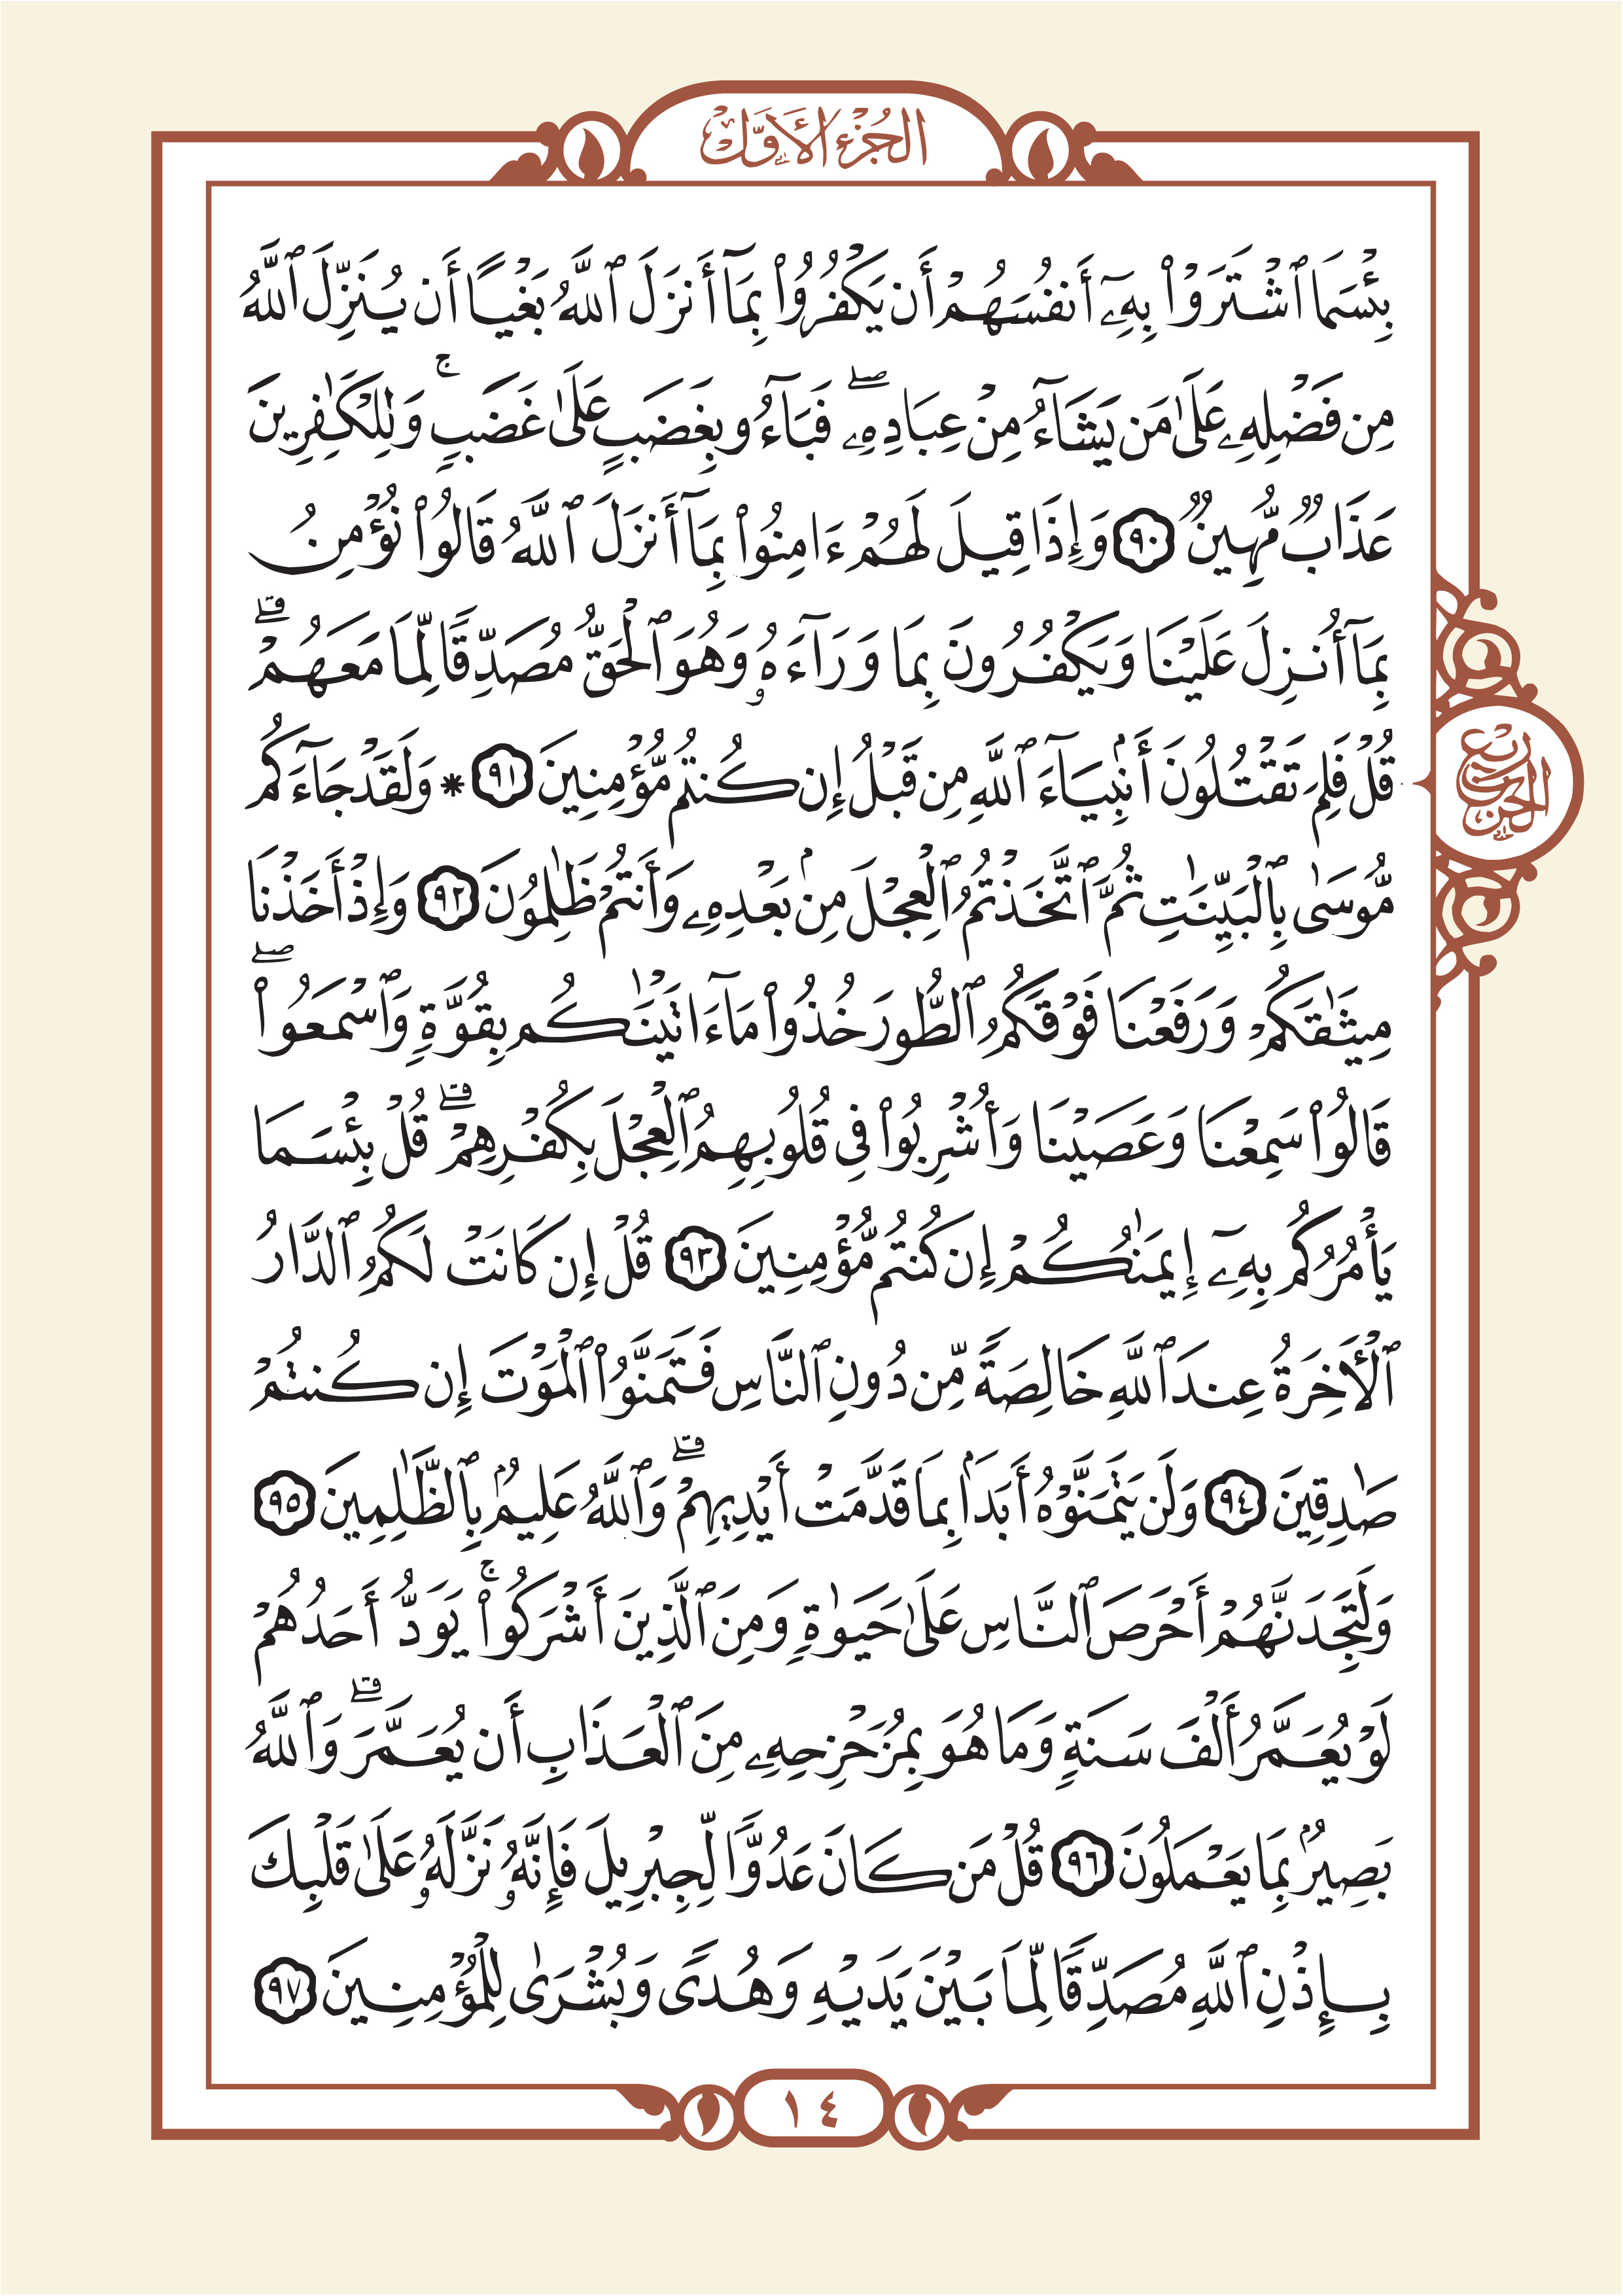 الجُزْءُ الأَوَّلُ
بِئْسَمَا ٱشْتَرَوْا۟ بِهِۦٓ أَنفُسَهُمْ أَن يَكْفُرُوا۟ بِمَآ أَنزَلَ ٱللَّهُ بَغْيًا أَن يُنَزِّلَ ٱللَّهُ
مِن فَضْلِهِۦ عَلَىٰ مَن يَشَآءُ مِنْ عِبَادِهِۦ ۖ فَبَآءُو بِغَضَبٍ عَلَىٰ غَضَبٍ ۚ وَلِلْكَٰفِرِينَ
عَذَابٌ مُّهِينٌ ٩٠ وَإِذَا قِيلَ لَهُمْ ءَامِنُوا۟ بِمَآ أَنزَلَ ٱللَّهُ قَالُوا۟ نُؤْمِنُ
بِمَآ أُنزِلَ عَلَيْنَا وَيَكْفُرُونَ بِمَا وَرَآءَهُۥ وَهُوَ ٱلْحَقُّ مُصَدِّقًا لِّمَا مَعَهُمْ ۗ
قُلْ فَلِمَ تَقْتُلُونَ أَنۢبِيَآءَ ٱللَّهِ مِن قَبْلُ إِن كُنتُم مُّؤْمِنِينَ ٩١ * وَلَقَدْ جَآءَكُم
مُّوسَىٰ بِٱلْبَيِّنَٰتِ ثُمَّ ٱتَّخَذْتُمُ ٱلْعِجْلَ مِنۢ بَعْدِهِۦ وَأَنتُمْ ظَٰلِمُونَ ٩٢ وَإِذْ أَخَذْنَا
مِيثَٰقَكُمْ وَرَفَعْنَا فَوْقَكُمُ ٱلطُّورَ خُذُوا۟ مَآ ءَاتَيْنَٰكُم بِقُوَّةٍ وَٱسْمَعُوا۟ ۖ
قَالُوا۟ سَمِعْنَا وَعَصَيْنَا وَأُشْرِبُوا۟ فِى قُلُوبِهِمُ ٱلْعِجْلَ بِكُفْرِهِمْ ۗ قُلْ بِئْسَمَا
يَأْمُرُكُم بِهِۦٓ إِيمَٰنُكُمْ إِن كُنتُم مُّؤْمِنِينَ ٩٣ قُلْ إِن كَانَتْ لَكُمُ ٱلدَّارُ
ٱلْأَخِرَةُ عِندَ ٱللَّهِ خَالِصَةً مِّن دُونِ ٱلنَّاسِ فَتَمَنَّوُا۟ ٱلْمَوْتَ إِن كُنتُمْ
صَٰدِقِينَ ٩٤ وَلَن يَتَمَنَّوْهُ أَبَدًۢا بِمَا قَدَّمَتْ أَيْدِيهِمْ ۗ وَٱللَّهُ عَلِيمٌۢ بِٱلظَّٰلِمِينَ ٩٥
وَلَتَجِدَنَّهُمْ أَحْرَصَ ٱلنَّاسِ عَلَىٰ حَيَوٰةٍ وَمِنَ ٱلَّذِينَ أَشْرَكُوا۟ ۚ يَوَدُّ أَحَدُهُمْ
لَوْ يُعَمَّرُ أَلْفَ سَنَةٍ وَمَا هُوَ بِمُزَحْزِحِهِۦ مِنَ ٱلْعَذَابِ أَن يُعَمَّرَ ۗ وَٱللَّهُ
بَصِيرٌۢ بِمَا يَعْمَلُونَ ٩٦ قُلْ مَن كَانَ عَدُوًّا لِّجِبْرِيلَ فَإِنَّهُۥ نَزَّلَهُۥ عَلَىٰ قَلْبِكَ
بِإِذْنِ ٱللَّهِ مُصَدِّقًا لِّمَا بَيْنَ يَدَيْهِ وَهُدًى وَبُشْرَىٰ لِلْمُؤْمِنِينَ ٩٧
ربع الحزب
١٤